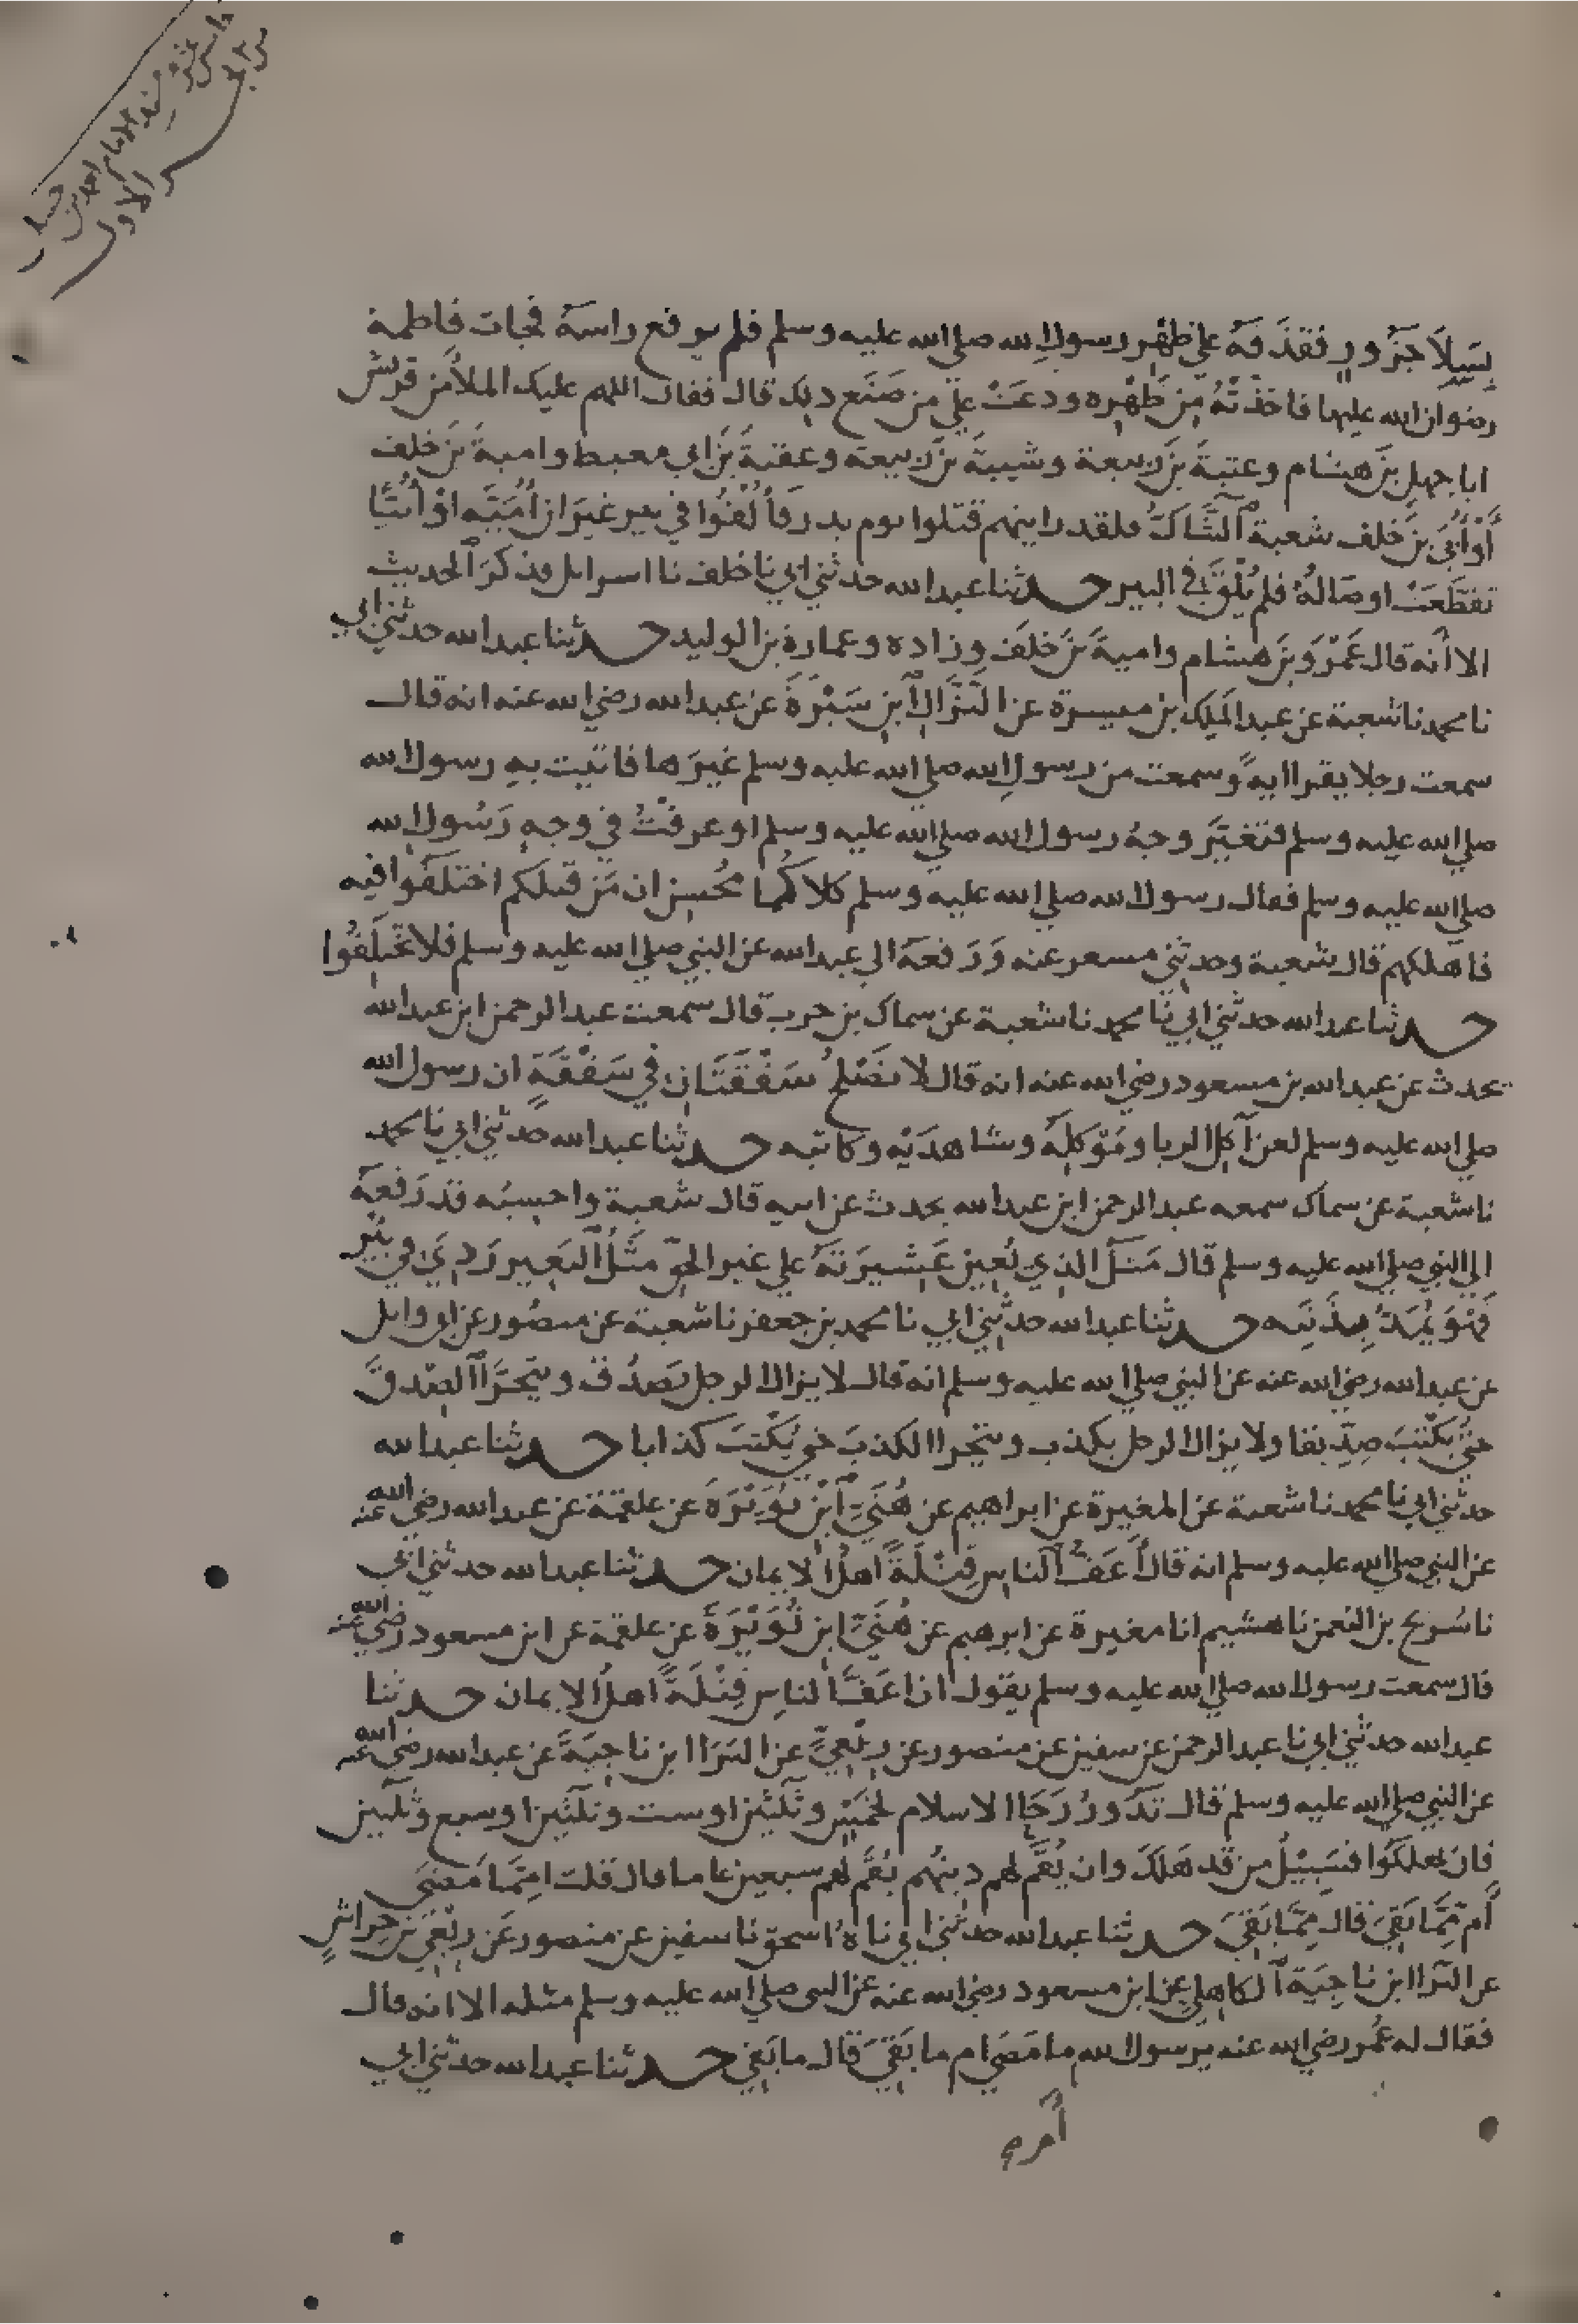 عاشر من مسند الامام احمد بن حنبل
الاول
بِسَلا جَزُورٍ فقذَفَهُ علي ظهْرِ رسول الله صلي الله عليه وسلم فلم يرفع راسهُ فجات فاطمة
رضوان الله عليها فاخذَتْهُ مِن ظَهْرِه ودعَتْ علي من صَنَع ذلك قال فقال اللهم عليك الملأ من قريش
ابا جهل بن هشام وعتبة بن ربيعة وشيبة بن ربيعة وعقبة بن ابي معيط وامية بن خلف
أوْ أُبَيَّ بن خلف شعبة الشَّاكُّ فلقد رايتهم قتلوا يوم بدر فأُلقُوا في بير غيرَ ان أُمَيَّه اوْ أُبَيًّا
تقطَّعَتْ اوصَالُهُ فلم يُلْقَ في البير حدثنا عبد الله حدثني ابي نا خلف نا اسرايل فذكرَ الحديث
الا أنه قال عَمْرَو بن هشام وامية بن خلَف وزاده وعمارة بن الوليد حدثنا عبد الله حدثني ابي
نا محمد نا شعبة عن عبد الملك بن ميسرة عن النزَّال ابن سَبْرَةَ عن عبد الله رضي الله عنه انه قال
سمعت رجلا يقرا ايه وسمعت من رسول الله صلي الله عليه وسلم غيرَها فاتيت به رسول الله
صلي الله عليه وسلم فتغيَّر وجهُ رسول الله صلي الله عليه وسلم او عرفْتُ في وجهِ رَسُول الله
صلي الله عليه وسلم فقال رسول الله صلي الله عليه وسلم كلاكُما مُحْسِن ان مَن قبلكم اختلَفُوا فيه
فاهلكهم قال شعبة وحدثني مسعر عنه وَرَفعهُ الي عبد الله عن النبي صلي الله عليه وسلم فلا تختلِفُوا
حدثنا عبد الله حدثني ابي نا محمد نا شعبة عن سماك بن حرب قال سمعت عبد الرحمن ابن عبد الله
يحدث عن عبد الله بن مسعود رضي الله عنه انه قال لا تصْلحُ سَفْقَتَانِ في سَفْقَةٍ ان رسول الله
صلي الله عليه وسلم لعن آكِلَ الربا ومُوكِلَهُ وشاهدَيْه وكاتبه حدثنا عبد الله حدثني ابي نا محمد
نا شعبة عن سماك سمعه عبد الرحمن ابن عبد الله يحدث عن ابيه قال شعبة واحسبُه قد رَفعهُ
الي النبي صلي الله عليه وسلم قال مَثَلُ الذي يُعِينُ عَشِيرَتَهُ علي غير الحقّ مَثَلُ البَعِير رَدِيَ في بئْر
فَهُوَ يُمَدُّ بِذَنَبِه حدثنا عبد الله حدثني ابي نا محمد بن جعفر نا شعبة عن منصُور عن ابي وايل
عن عبد الله رضي الله عنه عن النبي صلي الله عليه وسلم انه قال لا يزال الرجل يَصدُق ويتحرَّا الصِّدقَ
حتَّي يُكْتَبَ صِدِّيقا ولا يزال الرجل يكذب ويتحرا الكذبَ حتي يُكْتبَ كذابا حدثنا عبد الله
حدثني ابي نا محمد نا شعبة عن المغيرة عن ابراهيم عن هُنَيّ ابْن نُوَيْرَةَ عن علقمة عن عبد الله رضي الله عنه
عن النبي صلي الله عليه وسلم انه قال أَعَفُّ الناس قِتْلَةً اهلُ الايمان حدثنا عبد الله حدثني ابي
نا سُريج بن النعمن نا هشيم انا مغيرة عن ابرهيم عن هُنَيّ ابن نُوَيْرَةَ عن علقمة عن ابن مسعود رضي الله عنه
قال سمعت رسول الله صلي الله عليه وسلم يقول ان اعَفَّ الناسِ قِتْلَةً اهلُ الايمان حدثنا
عبد الله حدثني ابي نا عبد الرحمن عن سفين عن منصور عن رِبْعِيٍّ عن البَرَا ابن ناجِيَةَ عن عبد الله رضي الله عنه
عن النبي صلي الله عليه وسلم قال تدُورُ رَحَا الاسلام لخمْسٍ وثلثين او ست وثلثين او سبع وثلثين
فان يهلكُوا فسَبِيْلُ من قد هَلَكَ وان يُقَم لهم دينُهم يُقَم لهم سبعين عاما قال قلت امِمَّا مَضَى
أَم مِمَّا بَقِيَ قال مِمَّا بَقِيَ حدثنا عبد الله حدثني ابي ناهُ اسحق نا سفين عن منصور عَن رِبْعِيّ بن حِراشٍ
عن البَرَا ابن ناجِيَة الكاهلِي عن ابن مسعود رضي الله عنه عن النبي صلي الله عليه وسلم مثله الا انه قال
فقال له عُمر رضي الله عنه يرسول الله ما مضَي ام ما بَقِيَ قال ما بَقِيَ حدثنا عبد الله حدثني ابي